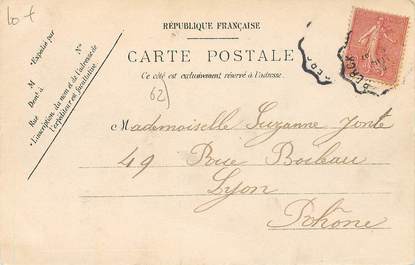 RÉPUBLIQUE FRANÇAISE
CARTE POSTALE
Ce côté est exclusivement réservé à l'adresse.
Expédié par
N°
M
Demt à
Rue
L'inscription du nom et de l'adresse de
l'expéditeur est facultative.
62)
Mademoiselle Suzanne Jonte
49 Rue Boileau
Lyon
Rhône
BERCK